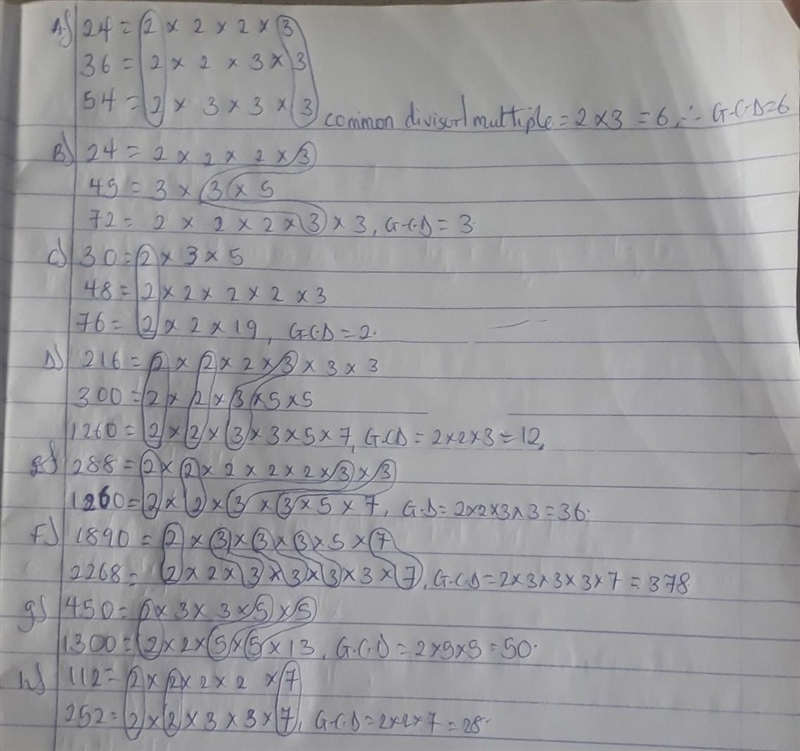 A) 24 = 2 × 2 × 2 × 3
36 = 2 × 2 × 3 × 3
54 = 2 × 3 × 3 × 3 common divisor/multiple = 2 × 3 = 6, ∴ G.C.D = 6
B) 24 = 2 × 2 × 2 × 3
45 = 3 × 3 × 5
72 = 2 × 2 × 2 × 3 × 3, G.C.D = 3.
C) 30 = 2 × 3 × 5
48 = 2 × 2 × 2 × 2 × 3
76 = 2 × 2 × 19, G.C.D = 2.
D) 216 = 2 × 2 × 2 × 3 × 3 × 3
300 = 2 × 2 × 3 × 5 × 5
1260 = 2 × 2 × 3 × 3 × 5 × 7, G.C.D = 2×2×3 = 12,
E) 288 = 2 × 2 × 2 × 2 × 2 × 3 × 3
1260 = 2 × 2 × 3 × 3 × 5 × 7, G.D = 2×2×3×3 = 36.
F) 1890 = 2 × 3 × 3 × 3 × 5 × 7
2268 = 2 × 2 × 3 × 3 × 3 × 3 × 7, G.C.D = 2×3×3×3×7 = 378
g) 450 = 2 × 3 × 3 × 5 × 5
1300 = 2 × 2 × 5 × 5 × 13, G.C.D = 2×5×5 = 50.
h) 112 = 2 × 2 × 2 × 2 × 7
252 = 2 × 2 × 3 × 3 × 7, G.C.D = 2×2×7 = 28.